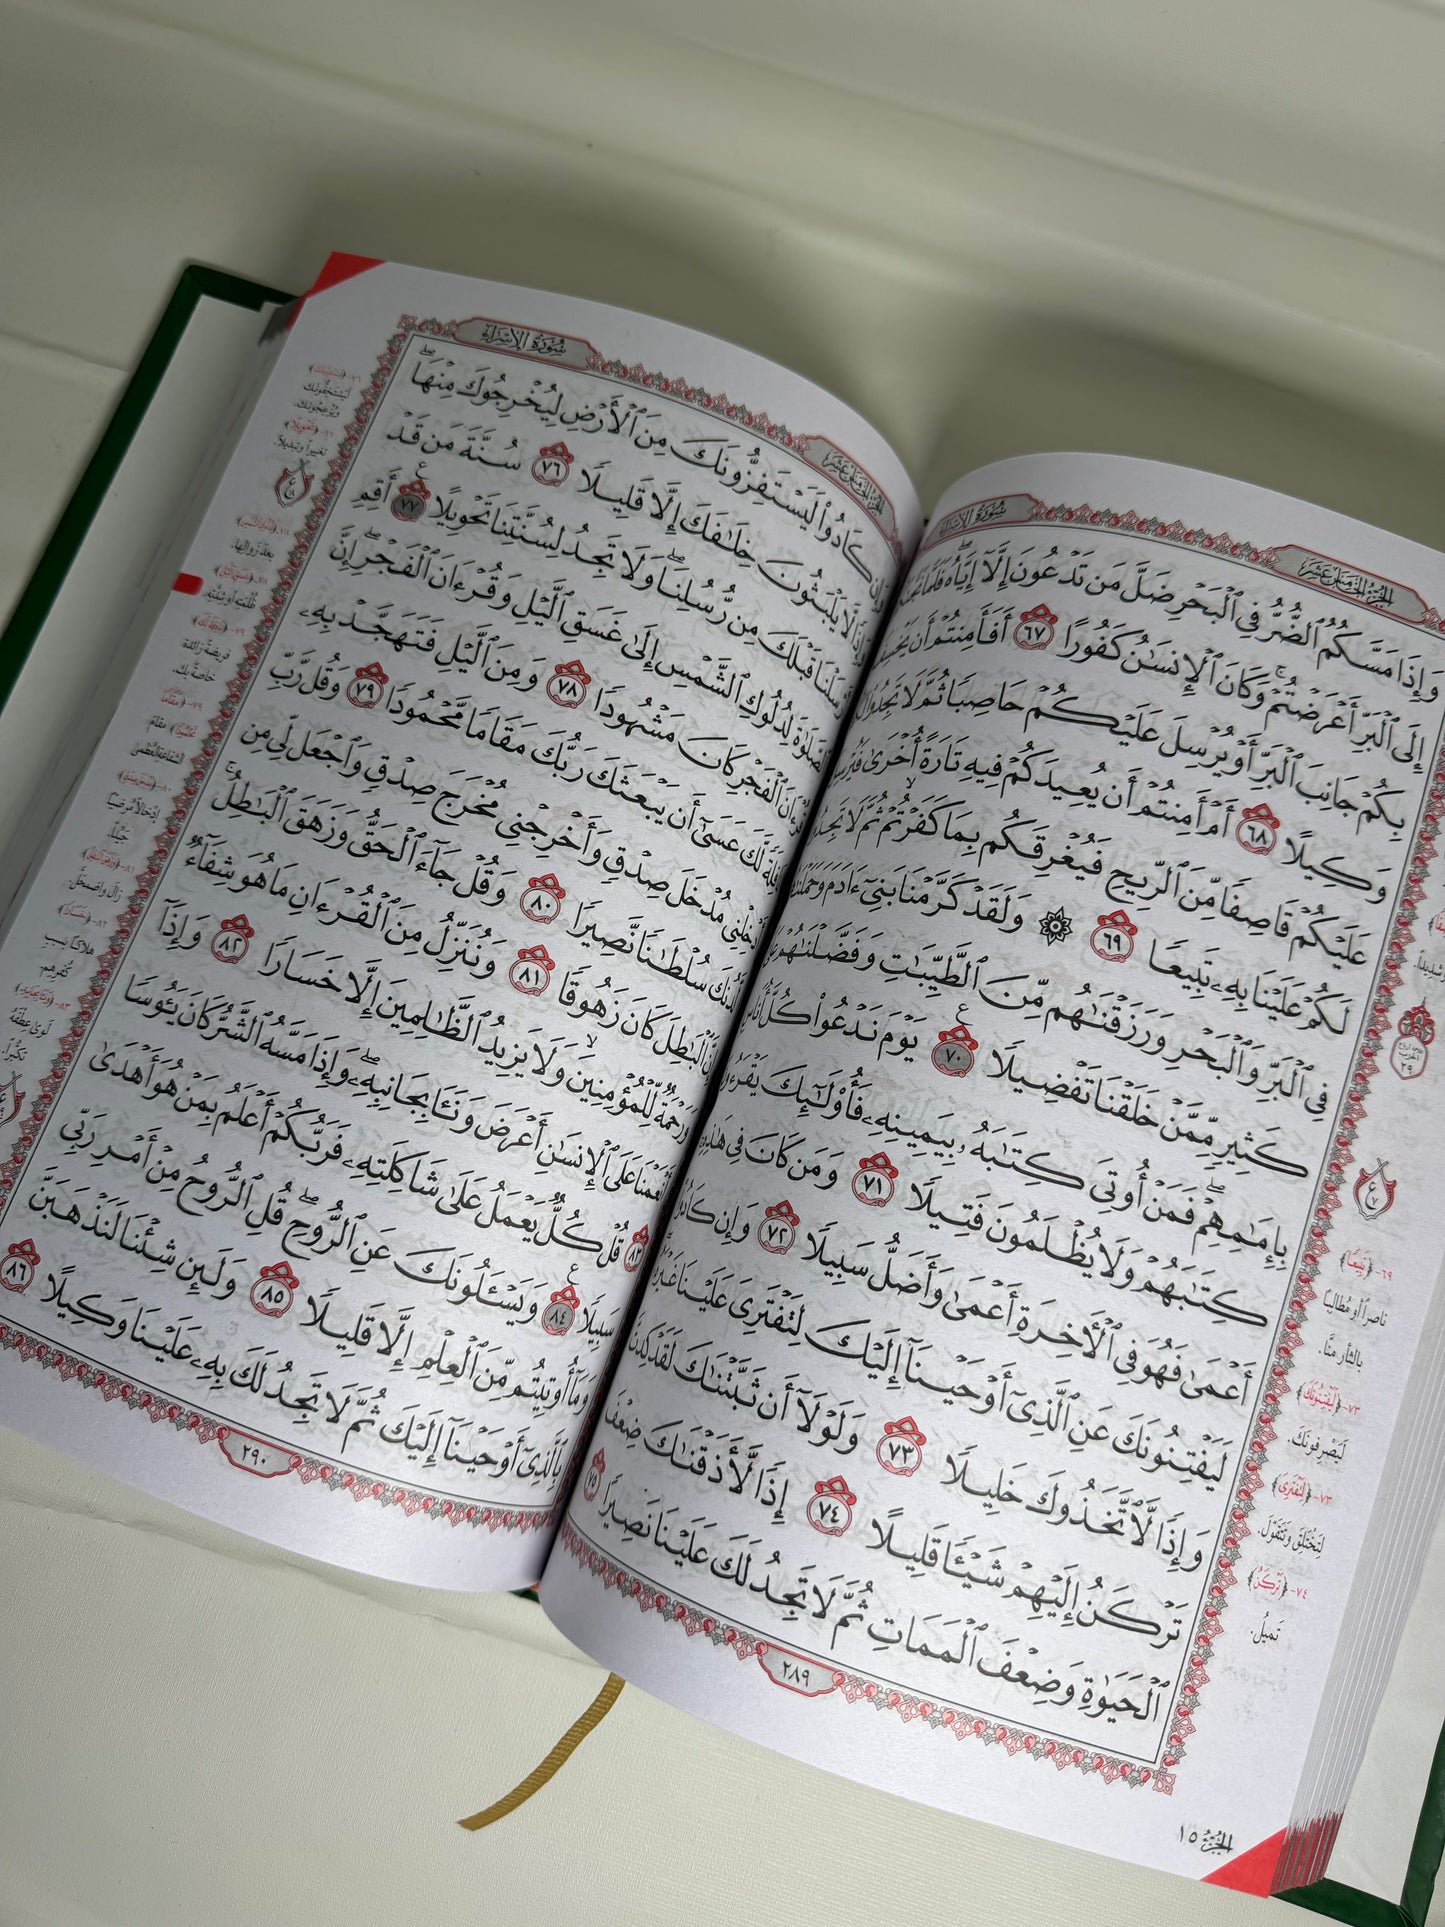 سُورَةُ الإِسْرَاءِ
الجُزْءُ الخَامِسَ عَشَرَ
وَإِذَا مَسَّكُمُ ٱلضُّرُّ فِي ٱلْبَحْرِ ضَلَّ مَن تَدْعُونَ إِلَّآ إِيَّاهُ ۖ فَلَمَّا
إِلَى ٱلْبَرِّ أَعْرَضْتُمْ ۚ وَكَانَ ٱلْإِنسَٰنُ كَفُورًا ٦٧ أَفَأَمِنتُمْ أَن
بِكُمْ جَانِبَ ٱلْبَرِّ أَوْ يُرْسِلَ عَلَيْكُمْ حَاصِبًا ثُمَّ لَا تَجِدُوا۟
وَكِيلًا ٦٨ أَمْ أَمِنتُمْ أَن يُعِيدَكُمْ فِيهِ تَارَةً أُخْرَىٰ
عَلَيْكُمْ قَاصِفًا مِّنَ ٱلرِّيحِ فَيُغْرِقَكُم بِمَا كَفَرْتُمْ ۙ ثُمَّ لَا
لَكُمْ عَلَيْنَا بِهِۦ تَبِيعًا ٦٩ ۞ وَلَقَدْ كَرَّمْنَا بَنِيٓ ءَادَمَ
فِي ٱلْبَرِّ وَٱلْبَحْرِ وَرَزَقْنَٰهُم مِّنَ ٱلطَّيِّبَٰتِ وَفَضَّلْنَٰهُمْ
كَثِيرٍ مِّمَّنْ خَلَقْنَا تَفْضِيلًا ٧٠ يَوْمَ نَدْعُوا۟ كُلَّ
بِإِمَٰمِهِمْ ۖ فَمَنْ أُوتِيَ كِتَٰبَهُۥ بِيَمِينِهِۦ فَأُو۟لَٰٓئِكَ
كِتَٰبَهُمْ وَلَا يُظْلَمُونَ فَتِيلًا ٧١ وَمَن كَانَ فِي
أَعْمَىٰ فَهُوَ فِي ٱلْأَخِرَةِ أَعْمَىٰ وَأَضَلُّ سَبِيلًا ٧٢ وَإِن
لَيَفْتِنُونَكَ عَنِ ٱلَّذِيٓ أَوْحَيْنَآ إِلَيْكَ لِتَفْتَرِيَ عَلَيْنَا
وَإِذًا لَّٱتَّخَذُوكَ خَلِيلًا ٧٣ وَلَوْلَآ أَن ثَبَّتْنَٰكَ لَقَدْ
تَرْكَنُ إِلَيْهِمْ شَيْـًٔا قَلِيلًا ٧٤ إِذًا لَّأَذَقْنَٰكَ ضِعْفَ
ٱلْحَيَوٰةِ وَضِعْفَ ٱلْمَمَاتِ ثُمَّ لَا تَجِدُ لَكَ عَلَيْنَا نَصِيرًا ٧٥
٢٨٩
الجُزْءُ ١٥
٦٩- ﴿تَبِيعًا﴾
ناصراً أو مُطالِباً
بالثأر منَّا.
٧٣- ﴿لَيَفْتِنُونَكَ﴾
لَيَصْرِفونَك.
٧٣- ﴿لِتَفْتَرِيَ﴾
لِتَخْتَلِقَ وتَتَقَوَّلَ.
٧٤- ﴿تَرْكَنُ﴾
تَميلُ.
سُورَةُ الإِسْرَاءِ
الجُزْءُ الخَامِسَ عَشَرَ
وَإِن كَادُوا۟ لَيَسْتَفِزُّونَكَ مِنَ ٱلْأَرْضِ لِيُخْرِجُوكَ مِنْهَا ۖ
وَإِذًا لَّا يَلْبَثُونَ خِلَٰفَكَ إِلَّا قَلِيلًا ٧٦ سُنَّةَ مَن قَدْ
أَرْسَلْنَا قَبْلَكَ مِن رُّسُلِنَا ۖ وَلَا تَجِدُ لِسُنَّتِنَا تَحْوِيلًا ٧٧ أَقِمِ
ٱلصَّلَوٰةَ لِدُلُوكِ ٱلشَّمْسِ إِلَىٰ غَسَقِ ٱلَّيْلِ وَقُرْءَانَ ٱلْفَجْرِ ۖ إِنَّ
قُرْءَانَ ٱلْفَجْرِ كَانَ مَشْهُودًا ٧٨ وَمِنَ ٱلَّيْلِ فَتَهَجَّدْ بِهِۦ
نَافِلَةً لَّكَ عَسَىٰٓ أَن يَبْعَثَكَ رَبُّكَ مَقَامًا مَّحْمُودًا ٧٩ وَقُل رَّبِّ
أَدْخِلْنِي مُدْخَلَ صِدْقٍ وَأَخْرِجْنِي مُخْرَجَ صِدْقٍ وَٱجْعَل لِّي مِن
لَّدُنكَ سُلْطَٰنًا نَّصِيرًا ٨٠ وَقُلْ جَآءَ ٱلْحَقُّ وَزَهَقَ ٱلْبَٰطِلُ ۚ
إِنَّ ٱلْبَٰطِلَ كَانَ زَهُوقًا ٨١ وَنُنَزِّلُ مِنَ ٱلْقُرْءَانِ مَا هُوَ شِفَآءٌ
وَرَحْمَةٌ لِّلْمُؤْمِنِينَ ۙ وَلَا يَزِيدُ ٱلظَّٰلِمِينَ إِلَّا خَسَارًا ٨٢ وَإِذَآ
أَنْعَمْنَا عَلَى ٱلْإِنسَٰنِ أَعْرَضَ وَنَـَٔا بِجَانِبِهِۦ ۖ وَإِذَا مَسَّهُ ٱلشَّرُّ كَانَ يَـُٔوسًا
٨٣ قُلْ كُلٌّ يَعْمَلُ عَلَىٰ شَاكِلَتِهِۦ فَرَبُّكُمْ أَعْلَمُ بِمَنْ هُوَ أَهْدَىٰ
سَبِيلًا ٨٤ وَيَسْـَٔلُونَكَ عَنِ ٱلرُّوحِ ۖ قُلِ ٱلرُّوحُ مِنْ أَمْرِ رَبِّي
وَمَآ أُوتِيتُم مِّنَ ٱلْعِلْمِ إِلَّا قَلِيلًا ٨٥ وَلَئِن شِئْنَا لَنَذْهَبَنَّ
بِٱلَّذِيٓ أَوْحَيْنَآ إِلَيْكَ ثُمَّ لَا تَجِدُ لَكَ بِهِۦ عَلَيْنَا وَكِيلًا ٨٦
٢٩٠
لَيَسْتَخِفُّونَك
ويُزْعِجُونَك.
٧٧- ﴿تَحْوِيلًا﴾
تغييراً وتبديلاً.
بعدَ زوالِها.
ظُلمَتِه أو شِدَّتِه.
٧٩- ﴿نَافِلَةً لَّكَ﴾
فريضةً زائدة
خاصةً بك.
٧٩- ﴿مَقَامًا
مَّحْمُودًا﴾ مقامَ
الشفاعة العُظمى
إدْخالاً مُرضياً
جيِّداً.
زال واضمحلَّ.
٨٢- ﴿خَسَارًا﴾
هلاكاً بسببِ
كُفرِهِم.
لَوى عِطْفَهُ
تكبُّراً.